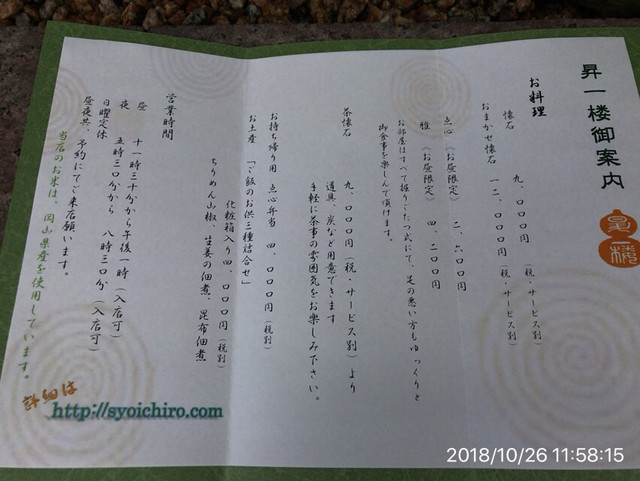 昇一楼御案内
昇一楼
お料理
懐石 九、〇〇〇円（税・サービス別）
おまかせ懐石 一二、〇〇〇円（税・サービス別）
点心（お昼限定） 二、六〇〇円
雅（お昼限定） 四、二〇〇円
お部屋はすべて掘りごたつ式にて、足の悪い方もゆっくりと
御食事を楽しんで頂けます。
茶懐石 九、〇〇〇円（税・サービス別）より
道具、炭など用意できます
手軽に茶事の雰囲気をお楽しみ下さい。
お持ち帰り用 点心弁当 四、〇〇〇円（税別）
お土産 「ご飯のお供三種詰合せ」
化粧箱入り四、〇〇〇円（税別）
ちりめん山椒、生姜の佃煮、昆布佃煮
営業時間
昼 十一時三十分から午後一時（入店可）
夜 五時三〇分から 八時三〇分（入店可）
日曜定休
昼夜共、予約にてご来店願います。
当店のお米は、岡山県産を使用しています。
詳細は
http://syoichiro.com
2018/10/26 11:58:15